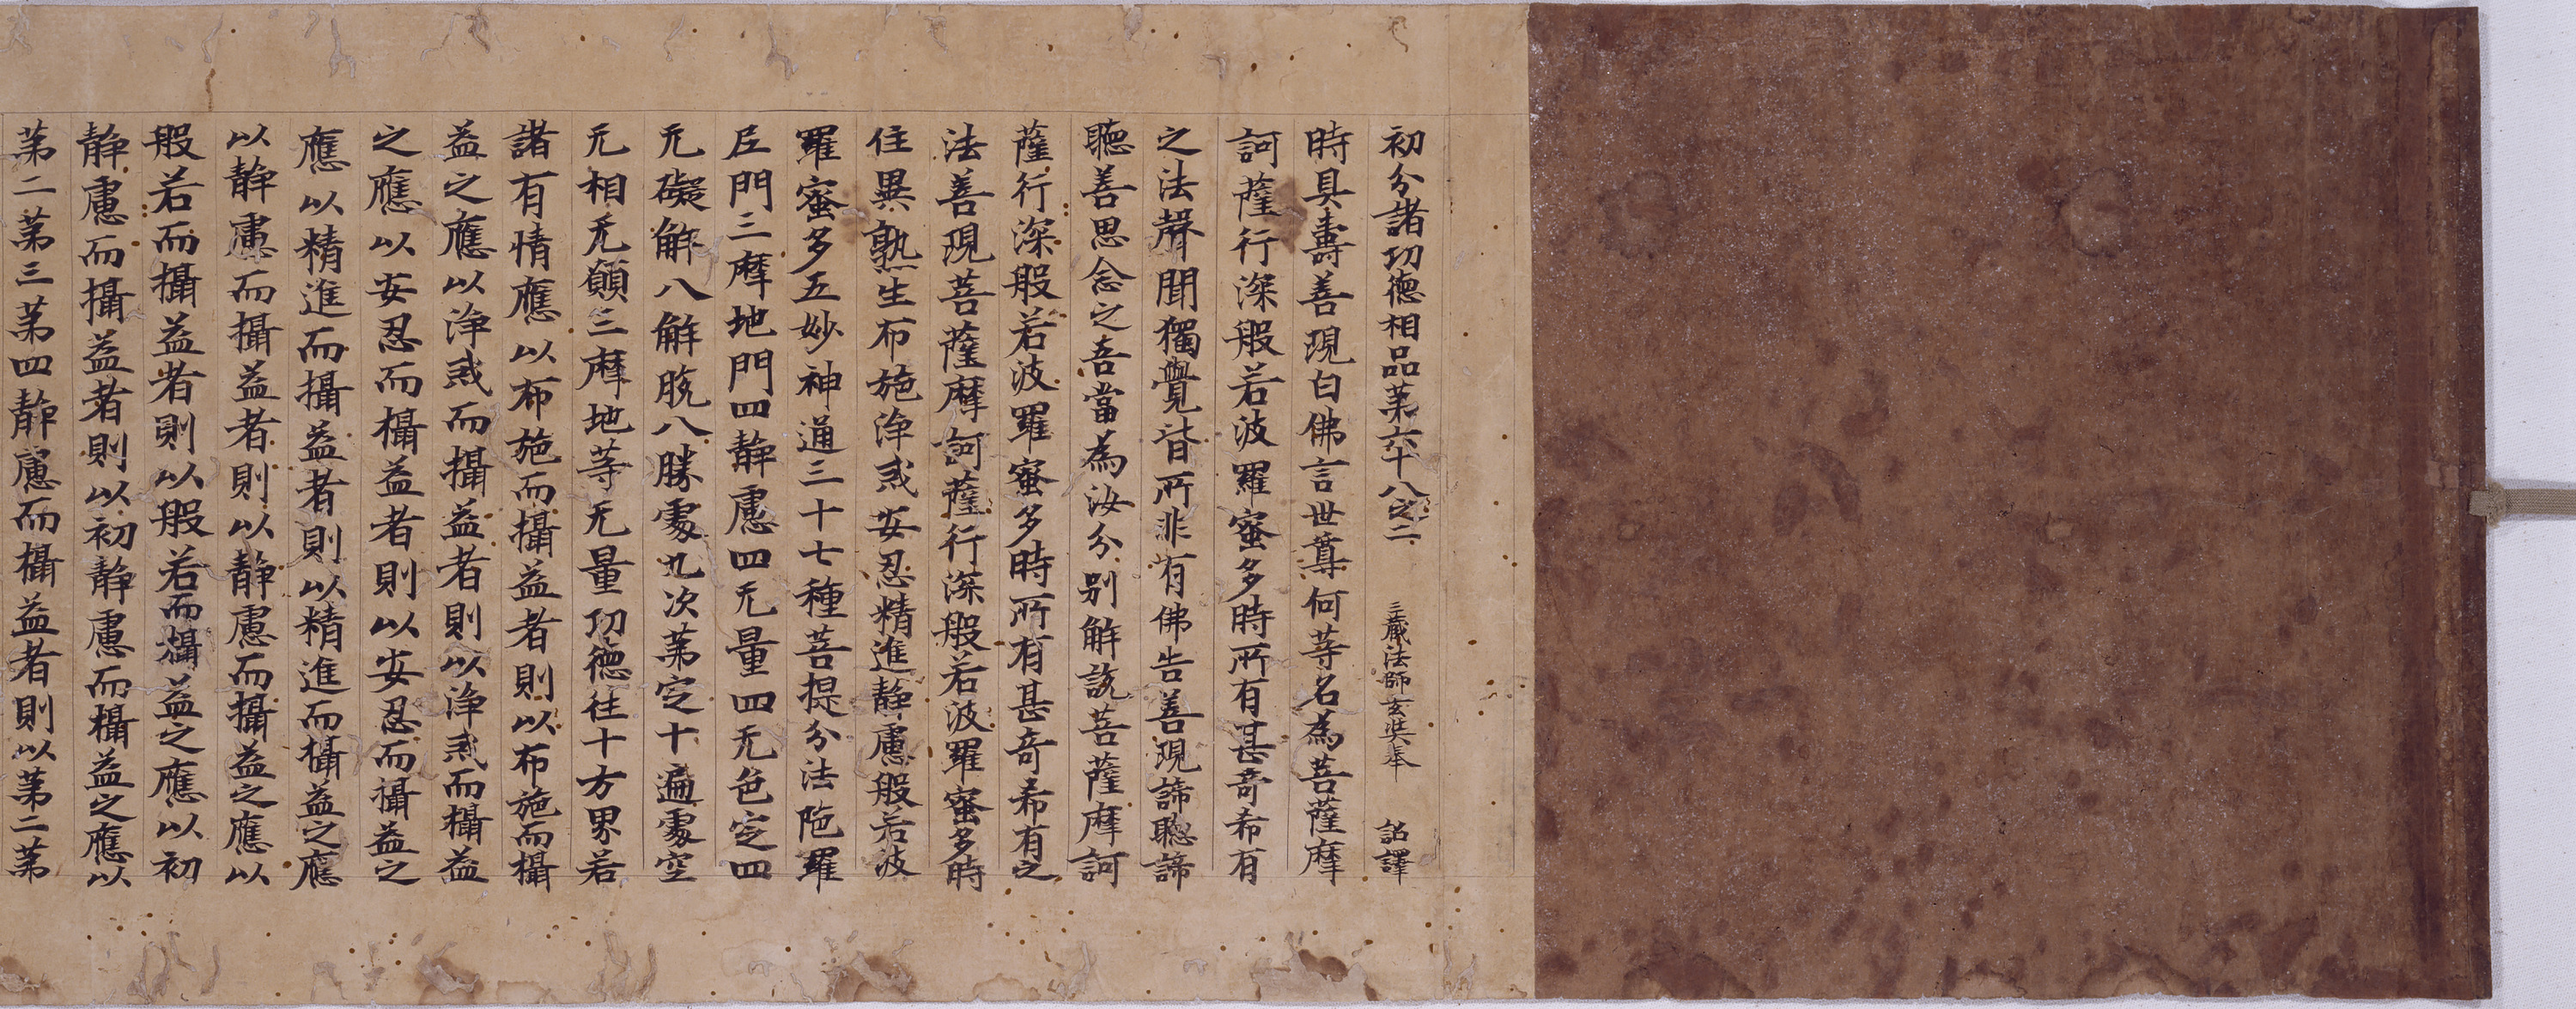 初分諸功德相品苐六十八之二 三藏法師玄奘奉 詔譯
時具壽善現白佛言世尊何等名為菩薩摩
訶薩行深般若波羅蜜多時所有甚奇希有
之法聲聞獨覺皆所非有佛告善現諦聽諦
聽善思念之吾當為汝分別解說菩薩摩訶
薩行深般若波羅蜜多時所有甚奇希有之
法善現菩薩摩訶薩行深般若波羅蜜多時
住異熟生布施淨戒安忍精進靜慮般若波
羅蜜多五妙神通三十七種菩提分法陁羅
尼門三摩地門四靜慮四无量四无色定四
无礙解八解脫八勝處九次苐定十遍處空
无相无願三摩地等无量功德往十方界若
諸有情應以布施而攝益者則以布施而攝
益之應以淨戒而攝益者則以淨戒而攝益
之應以安忍而攝益者則以安忍而攝益之
應以精進而攝益者則以精進而攝益之應
以靜慮而攝益者則以靜慮而攝益之應以
般若而攝益者則以般若而攝益之應以初
靜慮而攝益者則以初靜慮而攝益之應以
苐二苐三苐四靜慮而攝益者則以苐二苐